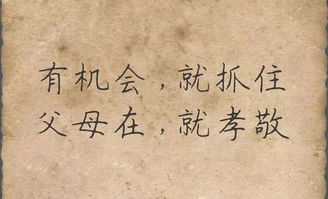 有机会，就抓住
父母在，就孝敬